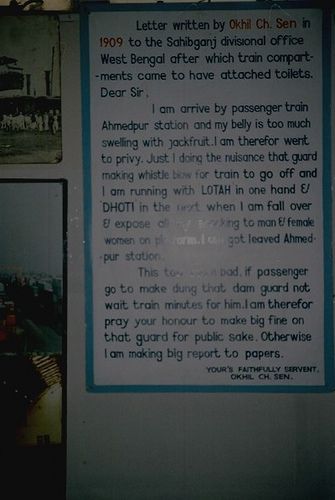 Letter written by Okhil Ch. Sen in
1909 to the Sahibganj divisional office
West Bengal after which train compart-
-ments came to have attached toilets.
Dear Sir,
I am arrive by passenger train
Ahmedpur station and my belly is too much
swelling with jackfruit. I am therefor went
to privy. Just I doing the nuisance that guard
making whistle blow for train to go off and
I am running with LOTAH in one hand &
DHOTI in the next when I am fall over
& expose all king to man & female
women on I got leaved Ahmed-
-pur station.
This too bad, if passenger
go to make dung that dam guard not
wait train minutes for him. I am therefor
pray your honour to make big fine on
that guard for public sake. Otherwise
I am making big report to papers.
YOUR'S FAITHFULLY SERVENT,
OKHIL CH. SEN.